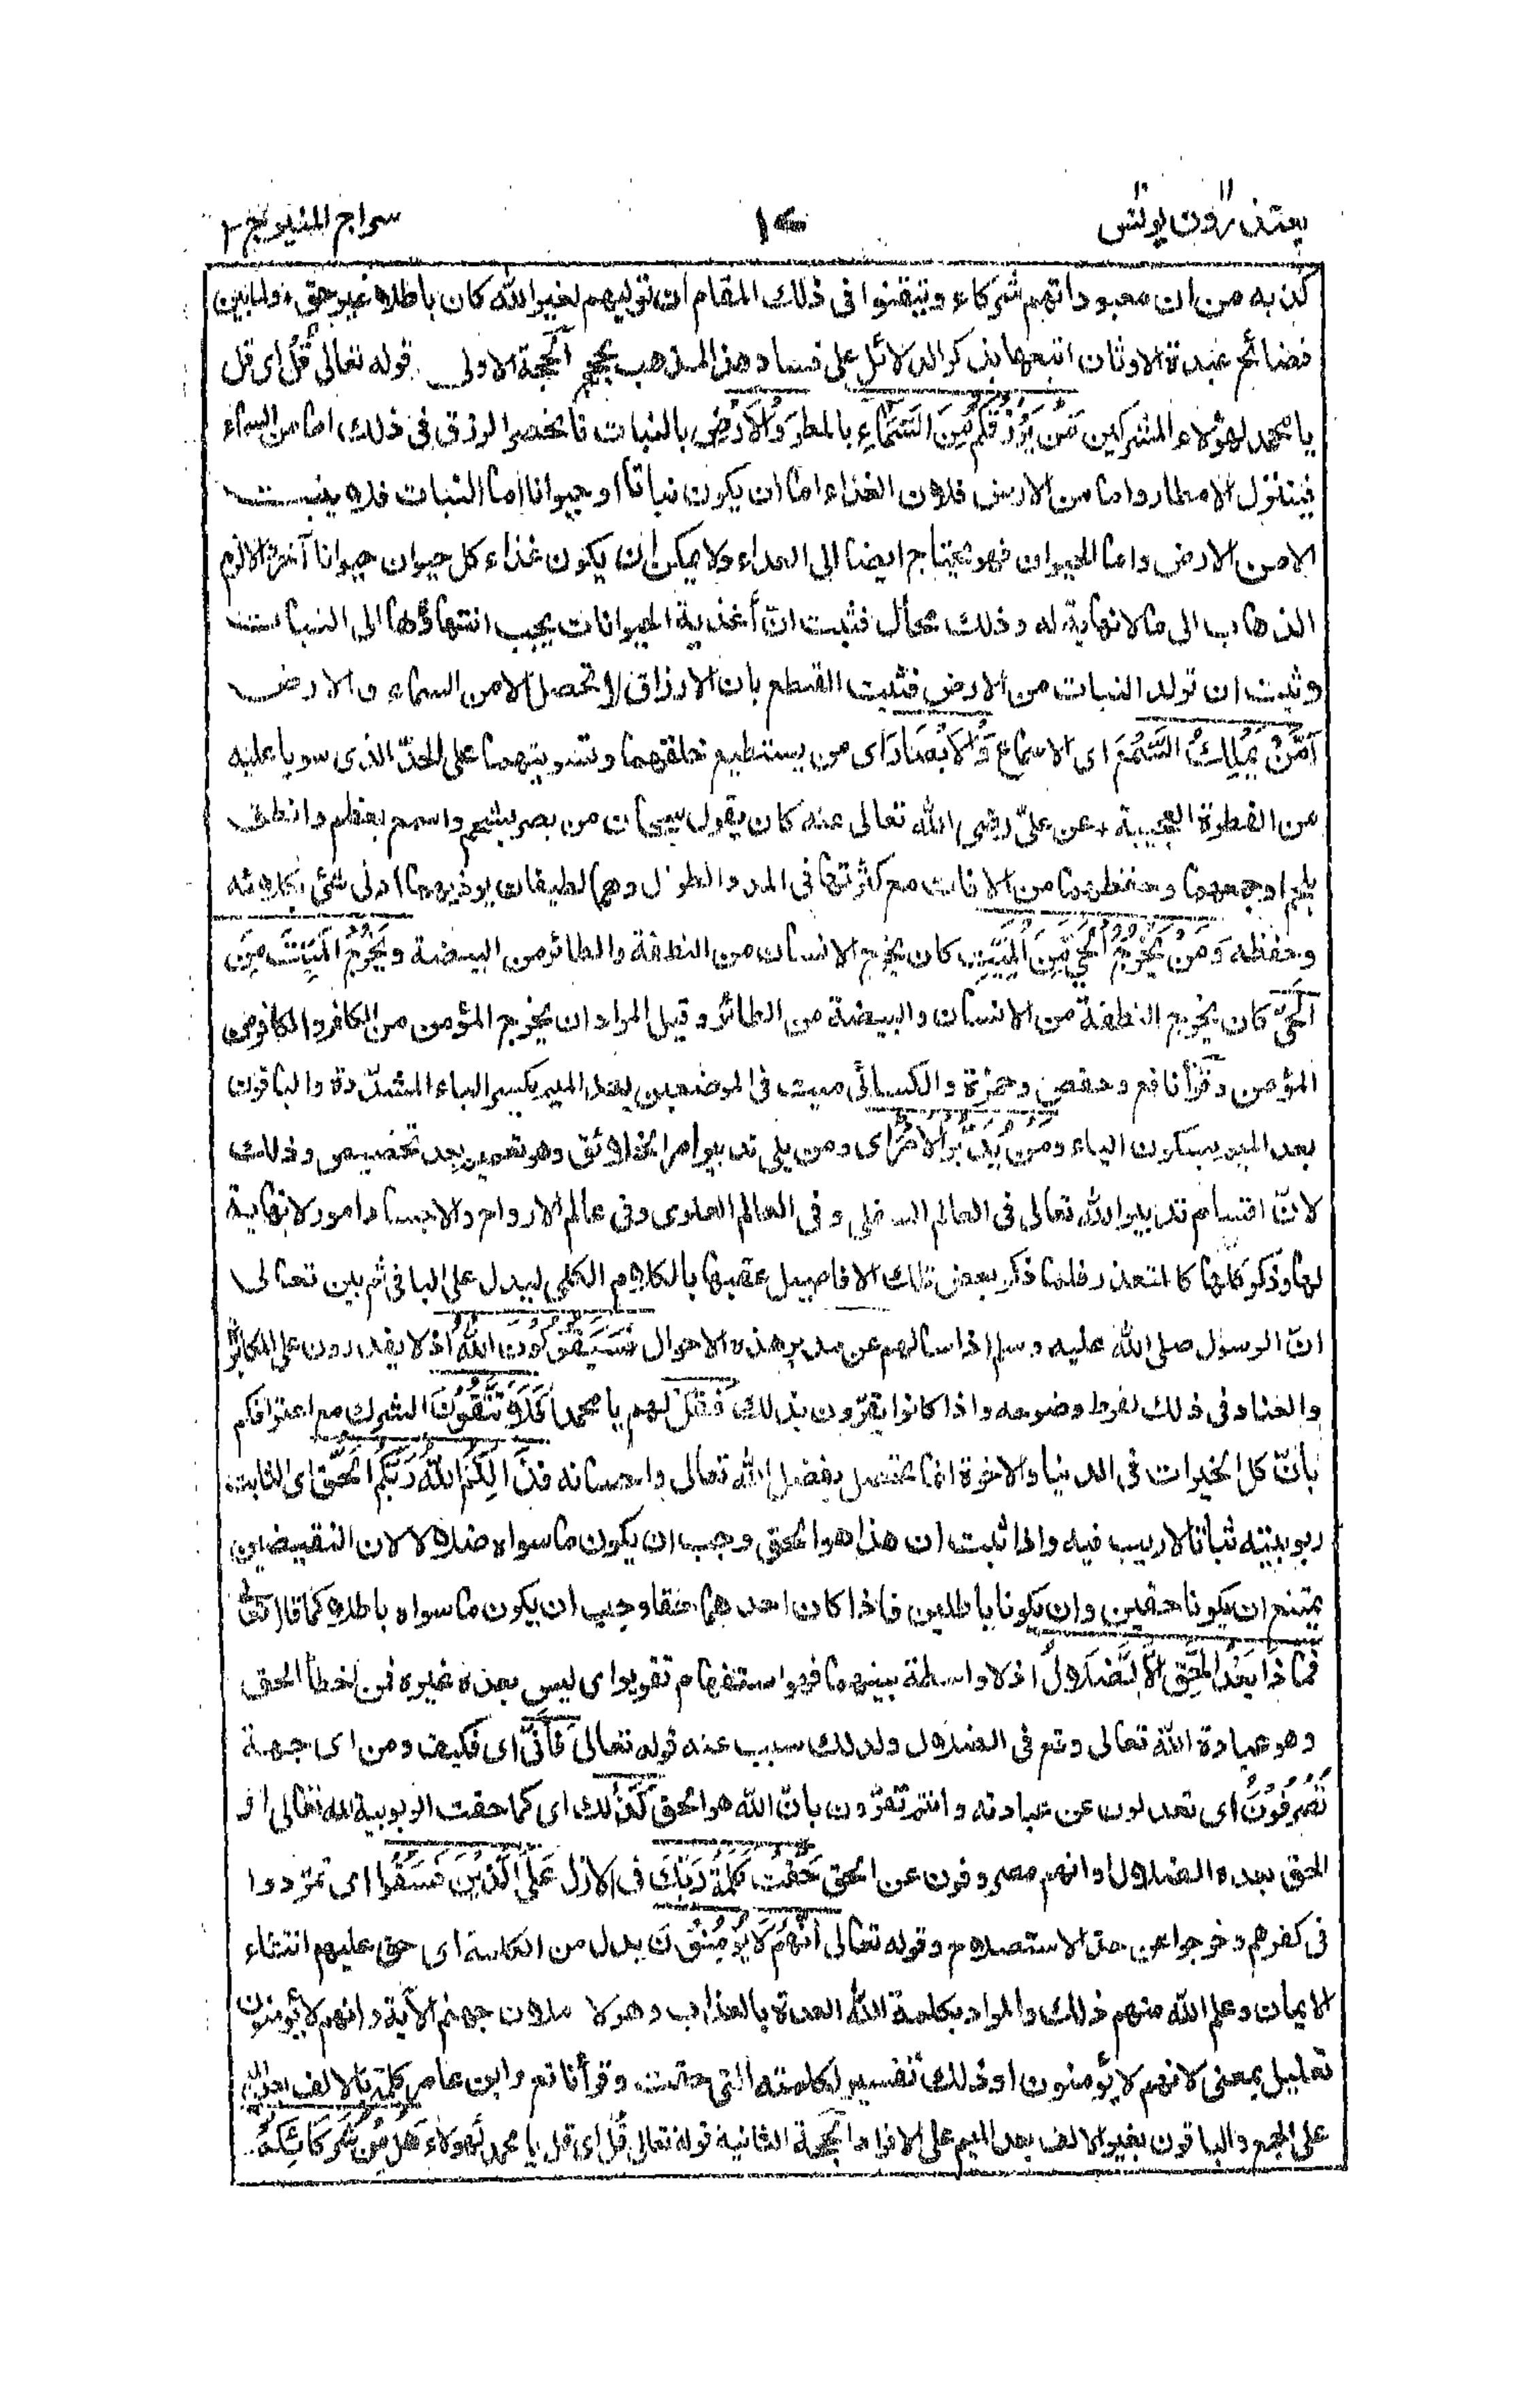 يعتذرون يونس
١٧
سراج المنير ج ٢
كذبه من ان معبوداتهم شركاء وتيقنوا فى ذلك المقام ان توليهم لغير الله كان باطلا غير حق ولما بين
فضائح عبدة الاوثان اتبعها بذكر الدلائل على فساد هذا المذهب بحجج الحجة الاولى قوله تعالى قُلْ اى قل
يا محمد لهؤلاء المشركين مَنْ يَرْزُقُكُمْ مِنَ السَّمَاءِ بالمطر وَالْاَرْضِ بالنبات فانحصر الرزق فى ذلك اما من السماء
فبنزول الامطار واما من الارض فلان الغذاء اما ان يكون نباتا او حيوانا اما النبات فلا ينبت
الا من الارض واما الحيوان فهو يحتاج ايضا الى الغذاء ولا يمكن ان يكون غذاء كل حيوان حيوانا آخر والالزم
الذهاب الى ما لا نهاية له وذلك محال فثبت انّ أغذية الحيوانات يجب انتهاؤها الى النبات
وثبت ان تولد النبات من الارض فثبت القطع بان الارزاق لا تحصل الا من السماء والارض
اَمَّنْ يَمْلِكُ السَّمْعَ اى الاسماع وَالْاَبْصَارَ اى من يستطيع خلقهما وتسويتهما على الحدّ الذى سويا عليه
من الفطرة العجيبة وعن علىّ رضى الله تعالى عنه كان يقول سبحان من بصر بشحم واسمع بعظم وانطق
بلحم او جمعهما وحفظهما من الآفات مع كثرتها فى المدد الطوال وهما لطيفان يوذيهما ادنى شئ بكلاءته
وحفظه وَمَنْ يُخْرِجُ الْحَيَّ مِنَ الْمَيِّتِ كان يخرج الانسان من النطفة والطائر من البيضة وَيُخْرِجُ الْمَيِّتَ مِنَ
الْحَيِّ كان يخرج النطفة من الانسان والبيضة من الطائر وقيل المراد ان يخرج المؤمن من الكافر والكافر من
المؤمن وقرأ نافع وحفص وحمزة والكسائى ميت فى الموضعين بعد الميم بكسر الياء المشدّدة والباقون
بعد الميم بسكون الياء وَمَنْ يُدَبِّرُ الْاَمْرَ اى ومن يلى تدبير امر الخلائق وهو تعميم بعد تخصيص وذلك
لانّ اقسام تدبير الله تعالى فى العالم السفلى وفى العالم العلوى وفى عالم الارواح والاجساد امور لا نهاية
لها وذكر كلها كالمتعذر فلما ذكر بعض تلك الافاصيل عقبها بالكلام الكلى ليدل على الباقى ثم بين تعالى
انّ الرسول صلى الله عليه وسلم اذا سالهم عن مدبر هذه الاحوال فَسَيَقُوْلُوْنَ اللّٰهُ اذ لا يقدرون على المكابرة
والعناد فى ذلك لفرط وضوحه واذا كانوا يقرّون بذلك فَقُلْ لهم يا محمد اَفَلَا تَتَّقُوْنَ الشرك مع اعترافكم
بانّ كل الخيرات فى الدنيا والاخرة انما تحصل بفضل الله تعالى واحسانه فَذٰلِكُمُ اللّٰهُ رَبُّكُمُ الْحَقُّ اى الثابت
ربوبيته ثباتا لا ريب فيه واذا ثبت ان هذا هو الحق وجب ان يكون ما سواه ضلالا لان النقيضين
يمتنع ان يكونا حقين وان يكونا باطلين فاذا كان احدهما حقا وجب ان يكون ما سواه باطلا كما قال تعالى
فَمَا ذَا بَعْدَ الْحَقِّ اِلَّا الضَّلَالُ اذ لا واسطة بينهما فهو استفهام تقرير اى ليس بعده غيره فمن اخطأ الحق
وهو عبادة الله تعالى وقع فى الضلال ولذلك سبب عنه قوله تعالى فَاَنّٰى اى فكيف ومن اى جهة
تُصْرَفُوْنَ اى تعدلون عن عبادته وانتم تقرّون بانّ الله هو الحق كَذٰلِكَ اى كما حقت الربوبية لله تعالى او
الحق بعده الضلال او انهم مصروفون عن الحق حَقَّتْ كَلِمَةُ رَبِّكَ فى الازل عَلَى الَّذِيْنَ فَسَقُوْا اى تمرّدوا
فى كفرهم وخرجوا عن حد الاستصلاح وقوله تعالى اَنَّهُمْ لَا يُؤْمِنُوْنَ بدل من الكلمة اى حق عليهم انتفاء
الايمان وعلم الله منهم ذلك والمراد بكلمة الله العدة بالعذاب وهو لاملان جهنم الآية وانهم لا يؤمنون
تعليل بمعنى لانهم لا يؤمنون او ذلك تفسير لكلمته التى حقت وقرأ نافع وابن عامر كلمات بالالف بعد الميم
على الجمع والباقون بغير الالف بعد الميم على الافراد الحجة الثانية قوله تعالى قُلْ اى قل يا محمد لهؤلاء هَلْ مِنْ شُرَكَائِكُمْ